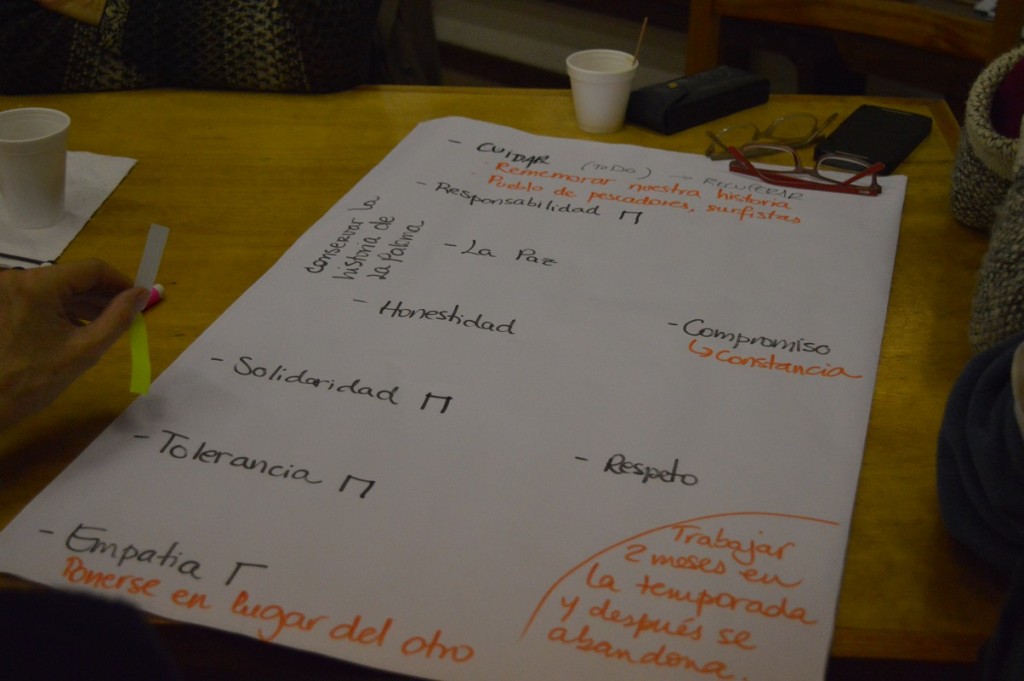 - CUIDAR (TODO) → RECUPERAR
- Rememorar nuestra historia
Pueblo de pescadores, surfistas
- Responsabilidad
conservar la
historia de
La Paloma
- La Paz
- Honestidad
- Compromiso
↳ Constancia
- Solidaridad
- Tolerancia
- Respeto
- Empatia
Ponerse en lugar del otro
Trabajar
2 meses en
la temporada
y después se
abandona.